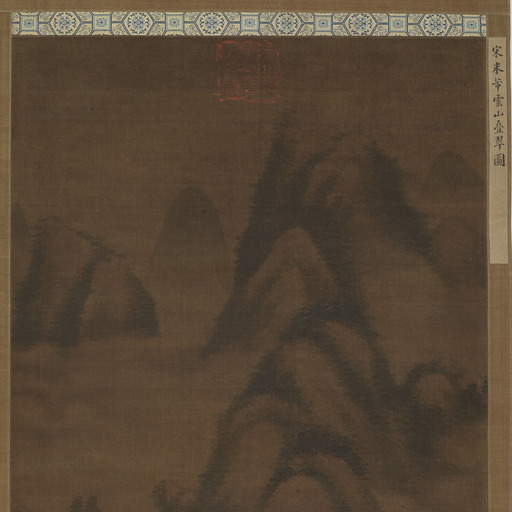 宋米芾雲山疊翠圖